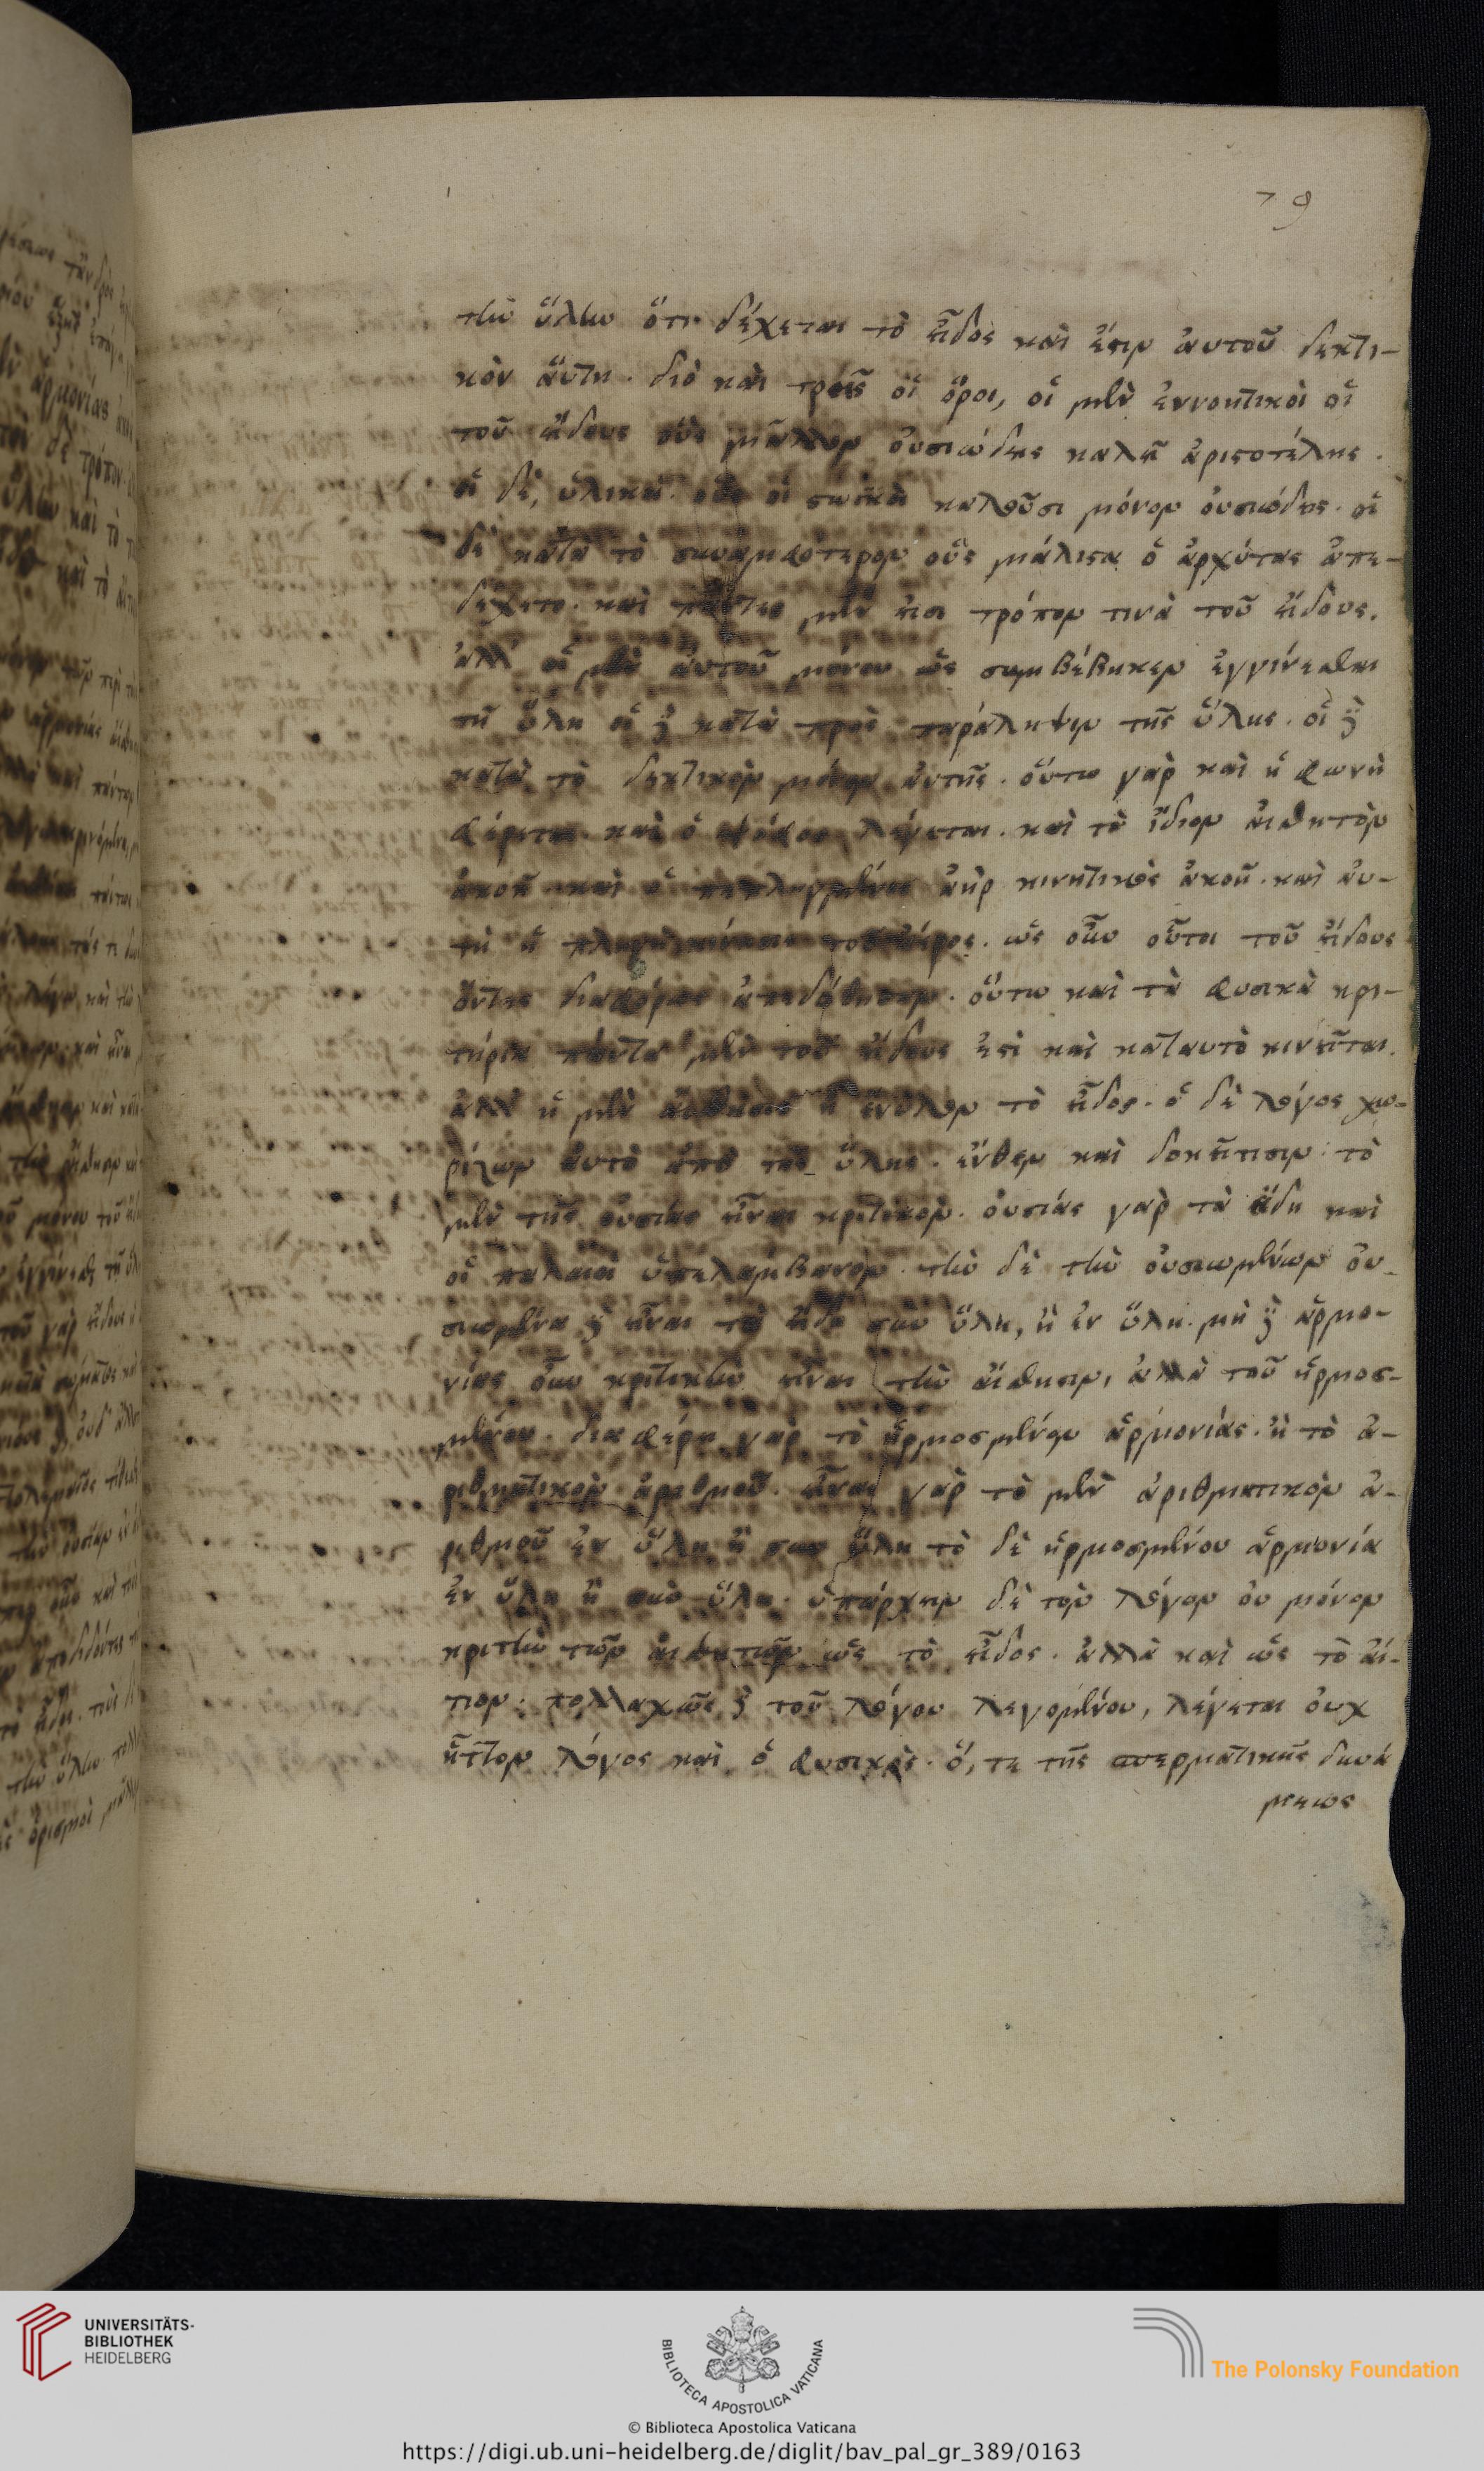 79
τὴν ὕλην ὅτι δέχεται τὸ εἶδος καὶ ἔστιν αὐτοῦ δεκτι-
κὸν αὕτη. διὸ καὶ τρεῖς οἱ ὅροι, οἱ μὲν ἐννοητικοὶ οἱ
τοῦ εἴδους οὓς μᾶλλον οὐσιώδεις καλεῖ ἀριστοτέλης.
οἱ δὲ, ὑλικοὶ. οὓς οἱ στωϊκοὶ καλοῦσι μόνον οὐσιώδεις. οἱ
δὲ κατὰ τὸ συναμφότερον οὓς μάλιστα ὁ ἀρχύτας ἀπε-
δέχετο. καὶ πάντες μέν εἰσι τρόπον τινὰ τοῦ εἴδους.
ἀλλ' οἱ μὲν αὐτοῦ μόνου ὡς συμβέβηκεν ἐγγίνεσθαι
τῇ ὕλῃ οἱ δὲ κατὰ πρὸς παράληψιν τῆς ὕλης. οἱ δὲ
κατὰ τὸ δεκτικὸν μόνον αὐτῆς. οὕτω γὰρ καὶ ἡ φωνὴ
φέρεται. καὶ ὁ ψόφος λέγεται. καὶ τὸ ἴδιον αἰσθητὸν
ἀκοῇ καὶ ὁ πεπληγμένος ἀὴρ κινητικὸς ἀκοῆ. καὶ αὐ-
τὴ ἡ πληγὴ κίνησις τοῦ ἀέρος. ὡς οὖν οὗτοι τοῦ εἴδους
ὄντες διαφόρως ἀπεδόθησαν. οὕτω καὶ τὰ φυσικὰ κρι-
τήρια πάντα μὲν τοῦ εἴδους ἐστὶ καὶ κατ αυτὸ κινεῖται.
ἀλλ' ἡ μὲν αἴσθησις ἢ ἔνυλον τὸ εἶδος. ὁ δὲ λόγος χω-
ρίζων αὐτὸ ἀπὸ τῆς ὕλης. ἔνθεν καὶ δοκεῖ τισιν τὸ
μὲν τῆς οὐσίας εἶναι κριτικὸν. οὐσίας γὰρ τὰ εἴδη καὶ
οἱ παλαιοὶ ὑπελάμβανον. τὴν δὲ τῶν οὐσιωμένων οὐ-
σιωμένα δὲ εἶναι τὰ εἴδη σὺν ὕλῃ, ἢ ἐν ὕλῃ. μὴ δὲ ἁρμο-
νίας οὖν κριτικὴν εἶναι τὴν αἴσθησιν, ἀλλὰ τοῦ ἡρμοσ-
μένου. διαφέρει γὰρ τὸ ἡρμοσμένον ἁρμονίας. ἢ τὸ ἀ-
ριθμητικὸν ἀριθμοῦ. εἶναι γὰρ τὸ μὲν ἀριθμητικὸν ἀ-
ριθμοῦ ἐν ὕλῃ ἢ συν ὕλῃ τὸ δὲ ἡρμοσμένου ἁρμονία
ἐν ὕλῃ ἢ σὺν ὕλῃ. ὑπάρχειν δὲ τὸν λόγον οὐ μόνον
κριτὴν τῶν αἰσθητῶν ὡς τὸ εἶδος. ἀλλὰ καὶ ὡς τὸ αἴ-
τιον. πολλαχῶς δὲ τοῦ λόγου λεγομένου, λέγεται οὐχ
ἧττον λόγος καὶ ὁ φυσικὸς. ὅ, τε τῆς σπερματικῆς δυνά
μεως
UNIVERSITÄTS-
BIBLIOTHEK
HEIDELBERG
BIBLIOTECA APOSTOLICA VATICANA
The Polonsky Foundation
© Biblioteca Apostolica Vaticana
https://digi.ub.uni-heidelberg.de/diglit/bav_pal_gr_389/0163